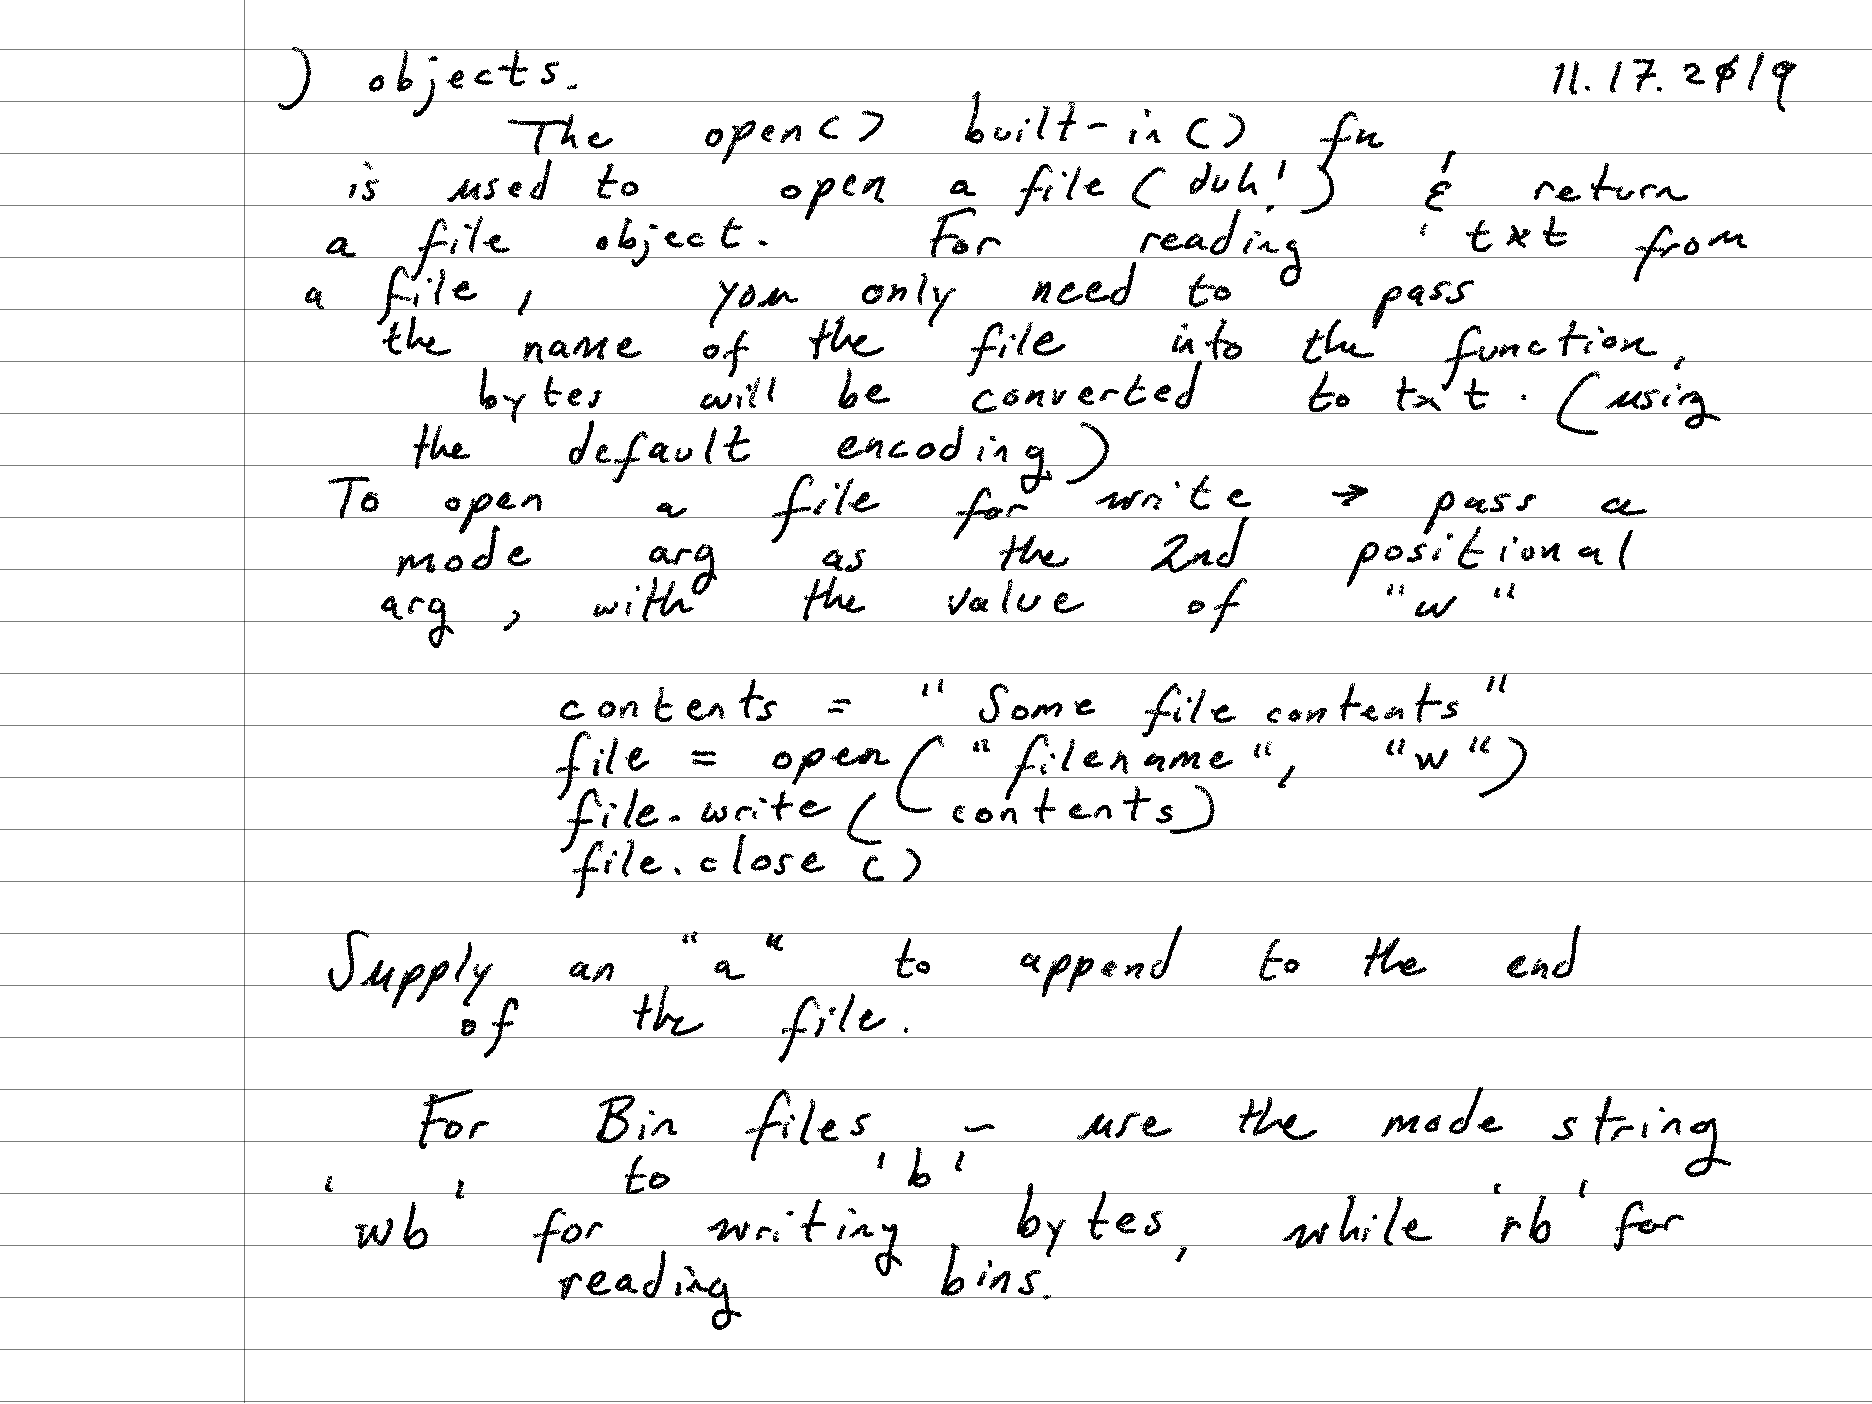 ) objects. 11.17.2019
The open() built-in() fn
is used to open a file (duh!) & return
a file object. For reading txt from
a file, you only need to pass
the name of the file into the function,
bytes will be converted to txt. (using
the default encoding)
To open a file for write → pass a
mode arg as the 2nd positional
arg, with the value of "w"
contents = "Some file contents"
file = open("filename", "w")
file.write(contents)
file.close()
Supply an "a" to append to the end
of the file.
For Bin files, - use the mode string
to 'b'
'wb' for writing bytes, while 'rb' for
reading bins.